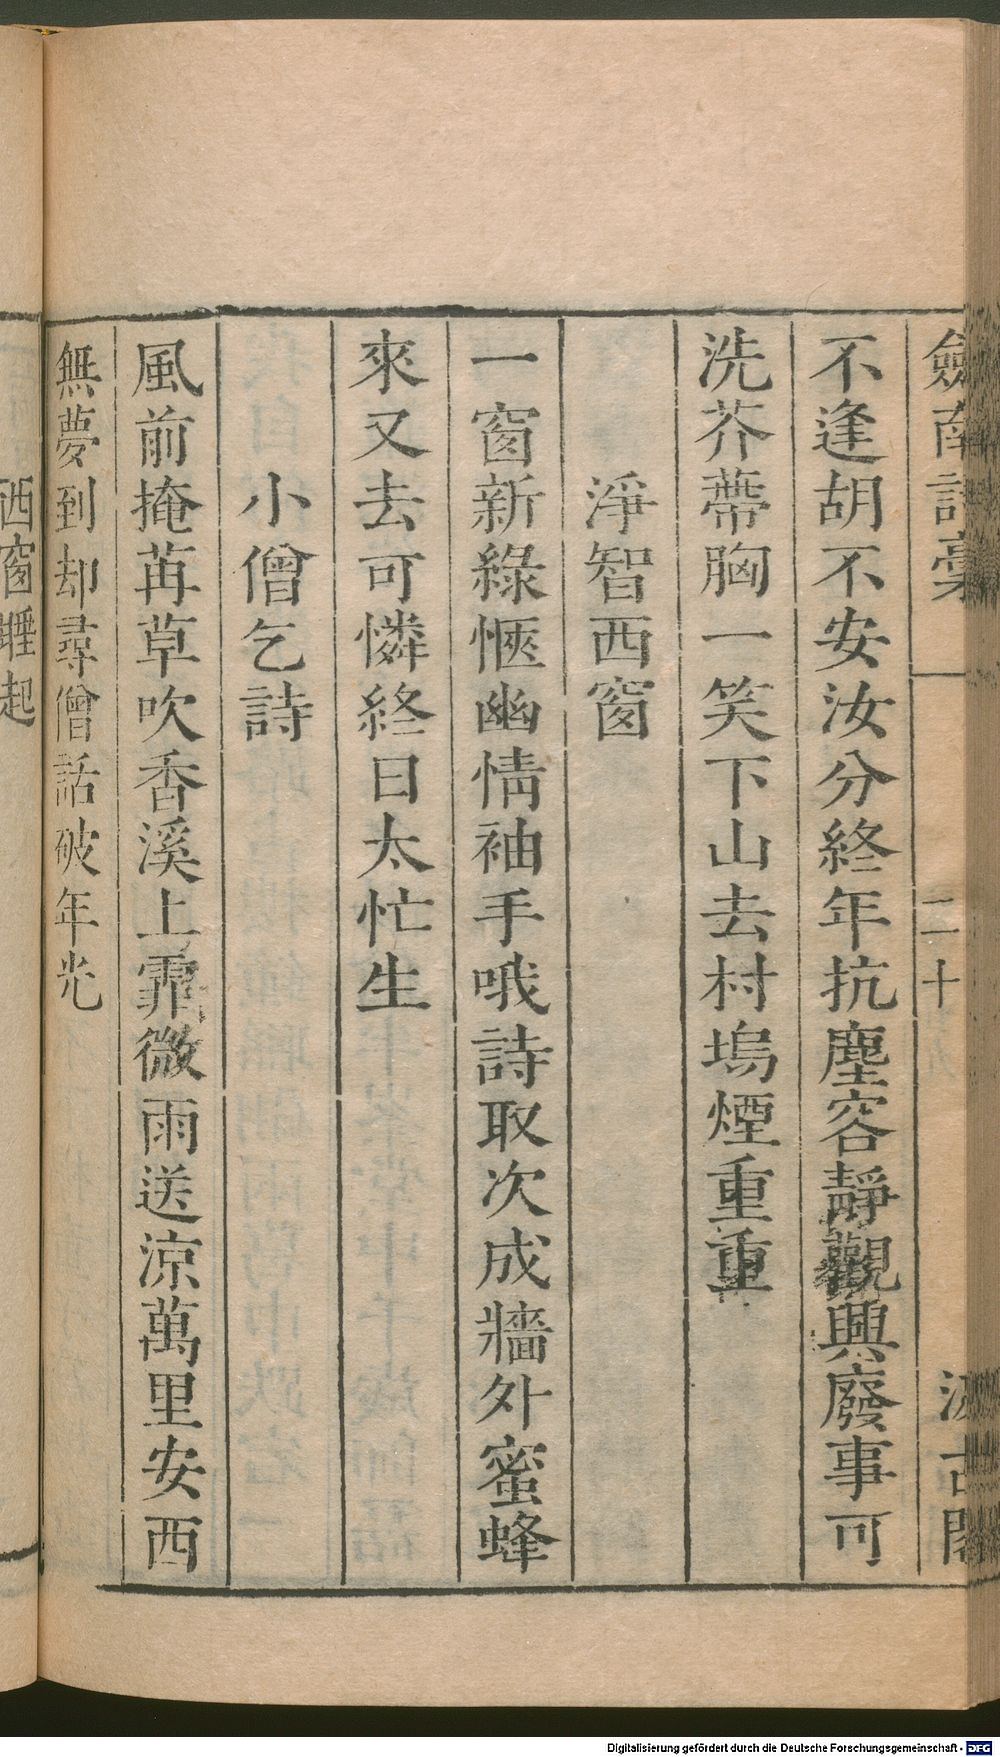 劒南詩稾
二十
汲古閣
不逢胡不安汝分終年抗塵容靜觀興廢事可
洗芥蔕胸一笑下山去村塢煙重重
淨智西窗
一窗新綠愜幽情袖手哦詩取次成牆外蜜蜂
來又去可憐終日太忙生
小僧乞詩
風前掩苒草吹香溪上霏微雨送涼萬里安西
無夢到却尋僧話破年光
西窗睡起
Digitalisierung gefördert durch die Deutsche Forschungsgemeinschaft - DFG